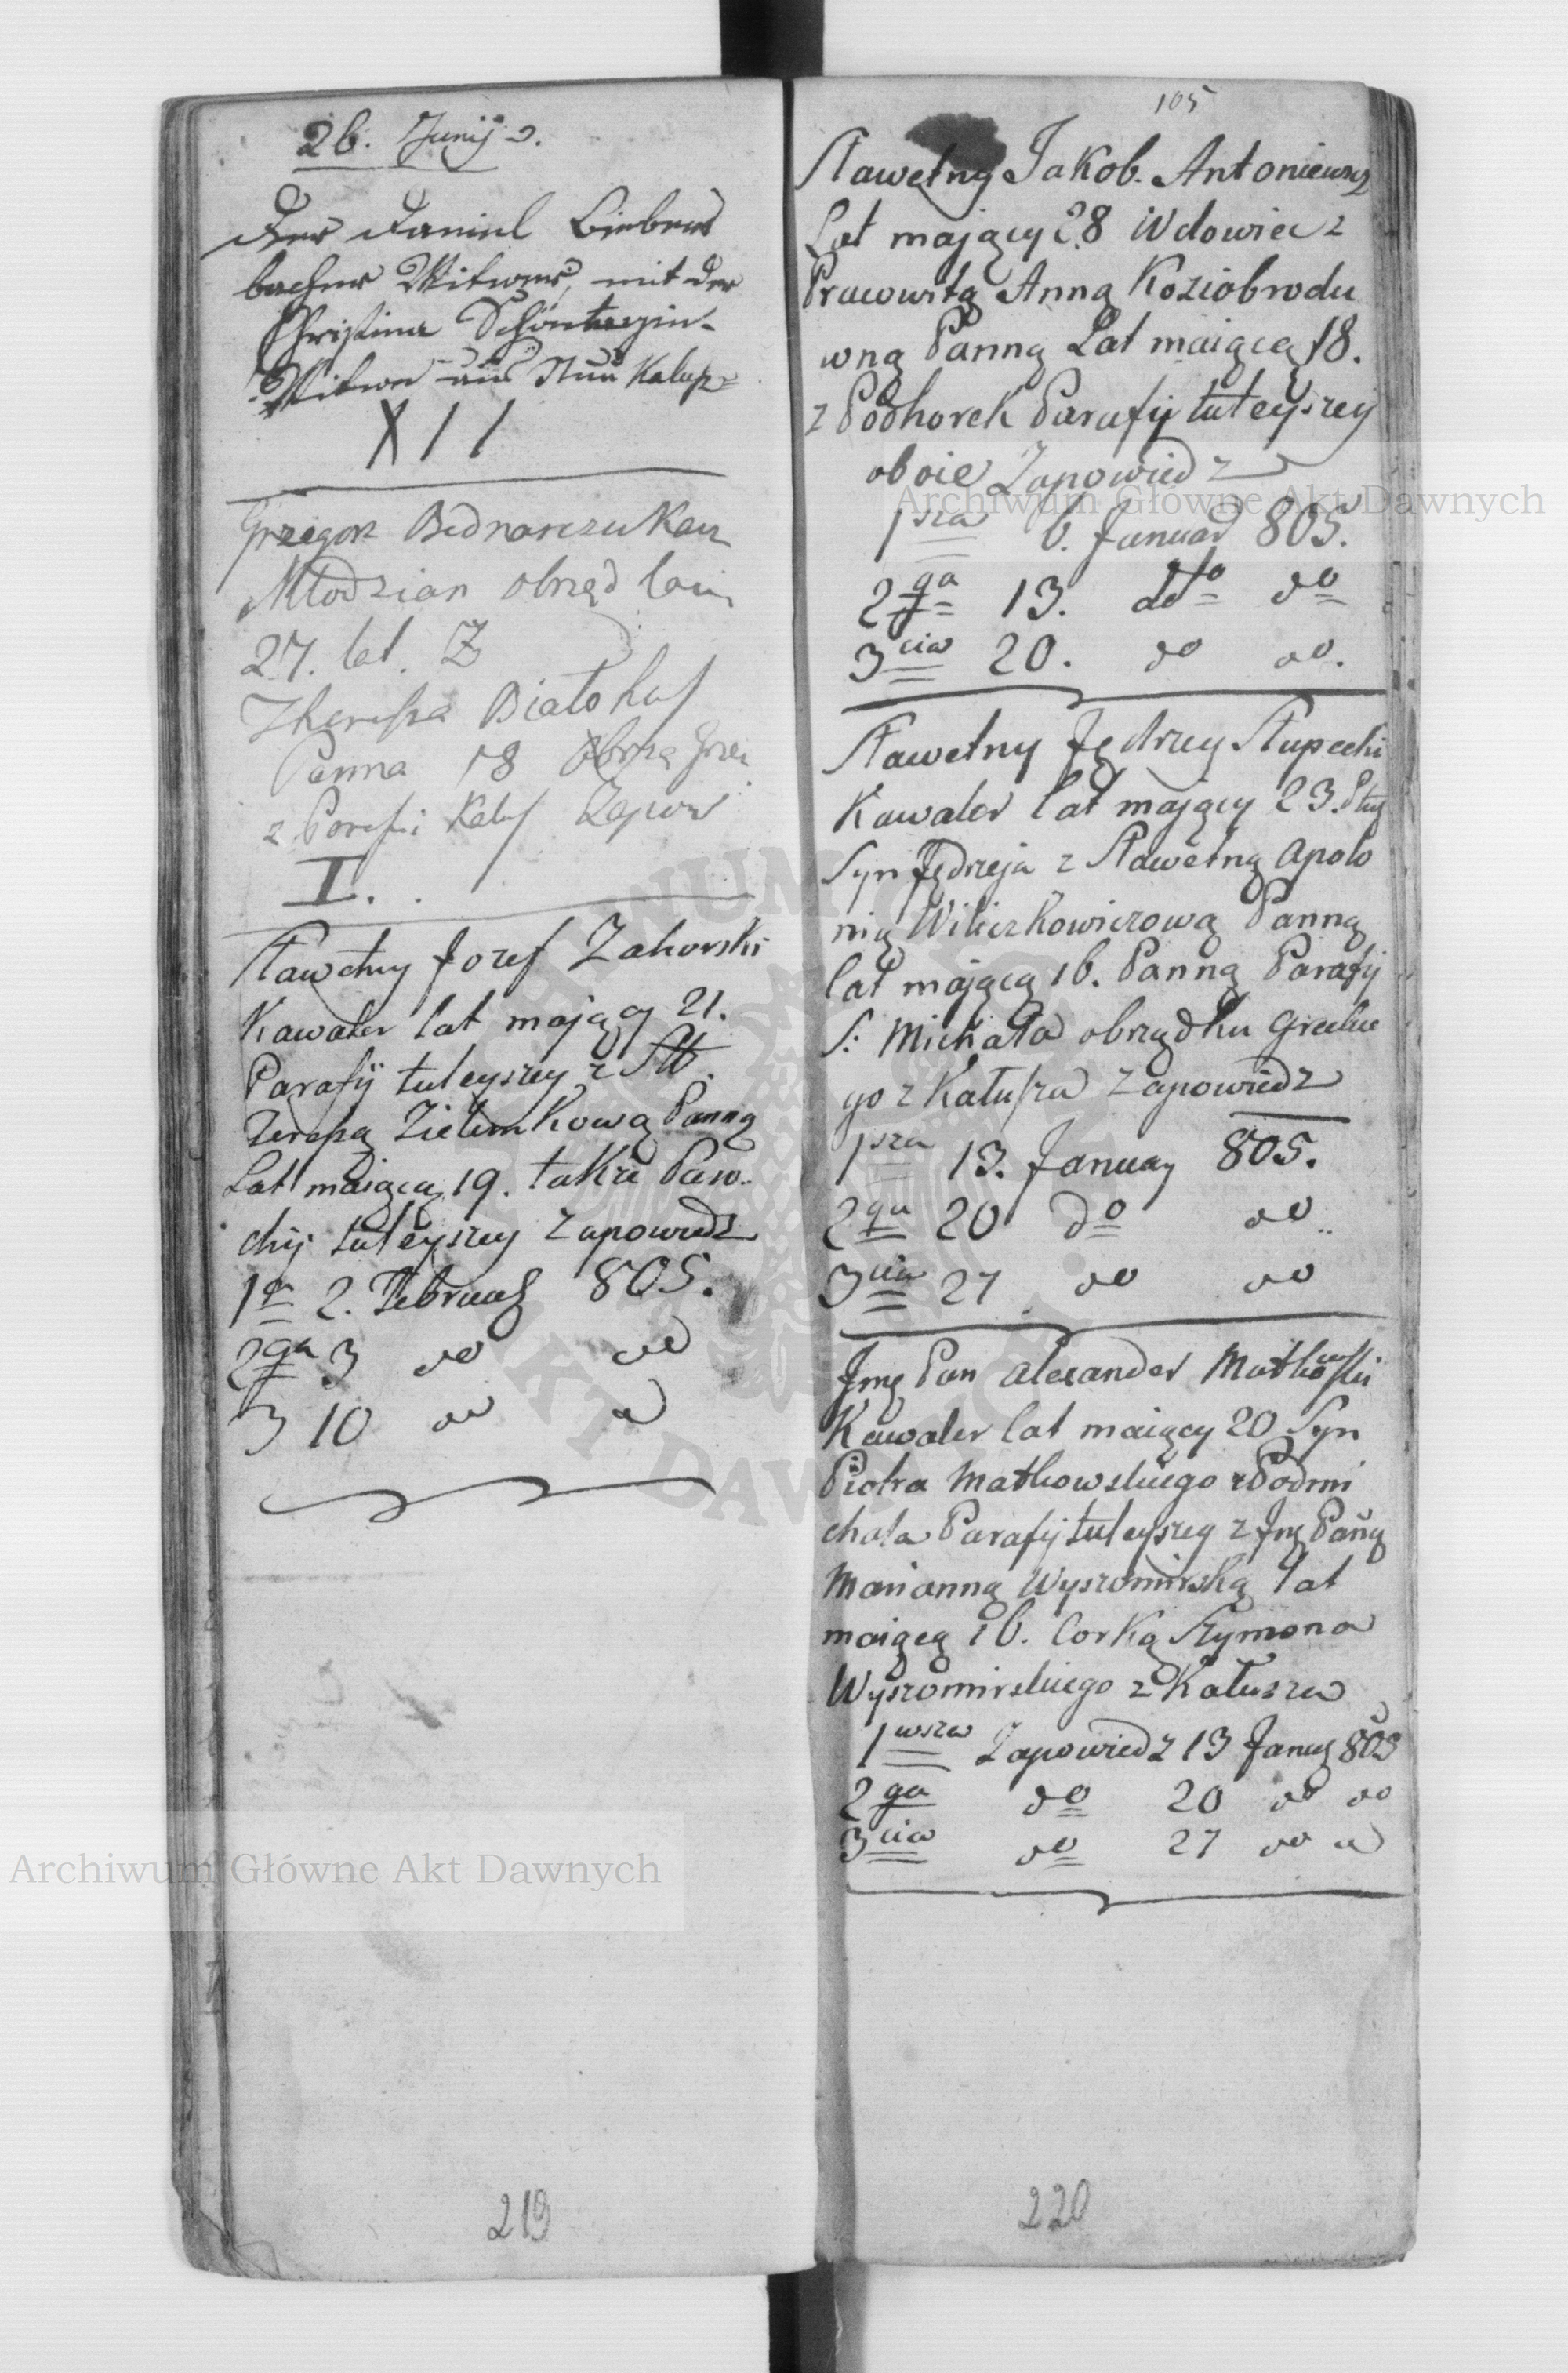 26. Junij
Der Daniel Bieben
bacher Witwer, mit der
Christina
Witwe aus Neu Kalusz
X I I
Grzegorz Bednarczuk
Młodzian obrząd
27. let. Z
Theressa Białohas
Panna 18
z Parafii Kalus Zapow
I.
Sławetny Jozef Zahorski
Kawaler lat mający 21.
Parafij tuteyszey z Sł.
Teressą Zielenkową Panną
Lat maiącą 19. także Para
chij tuteyszey zapowiedz
1a 2. Februar 805.
2ga 3 do do
3 10 do do
219
105
Sławetny Jakob. Antoniewicz
Lat mający 28 Wdowiec z
Pracowitą Anną Koziobrodu
wną Panną Lat maiącą 18.
z Podhorek Parafij tuteyszey
oboie Zapowiedz
1sza 6. Januar 805.
2ga 13. dto do
3cia 20. do do.
Sławetny Jędrzey Słupecki
Kawaler lat mający 23.
Syn Jędrzeja z Sławetną Apolo
nią Witiczkowiczową Panną
lat mającą 16. Panną Parafij
S: Michała obrządku Greckie
go z Kałusza zapowiedz
1sza 13. January 805.
2ga 20 do do
3cia 27 do do
Jmę Pan Alexander Matkowski
Kawaler lat maiący 20 Syn
Piotra Matkowskiego z Podmi
chala Parafij tuteyszey z Jmę Paną
Marianną Wyszomirską lat
maiącą 16. Corką Szymona
Wyszomirskiego z Kałusza
1wsza Zapowiedz 13 Januar 805
2ga do 20 do do
3cia do 27 do do
220
Archiwum Główne Akt Dawnych
Archiwum Główne Akt Dawnych